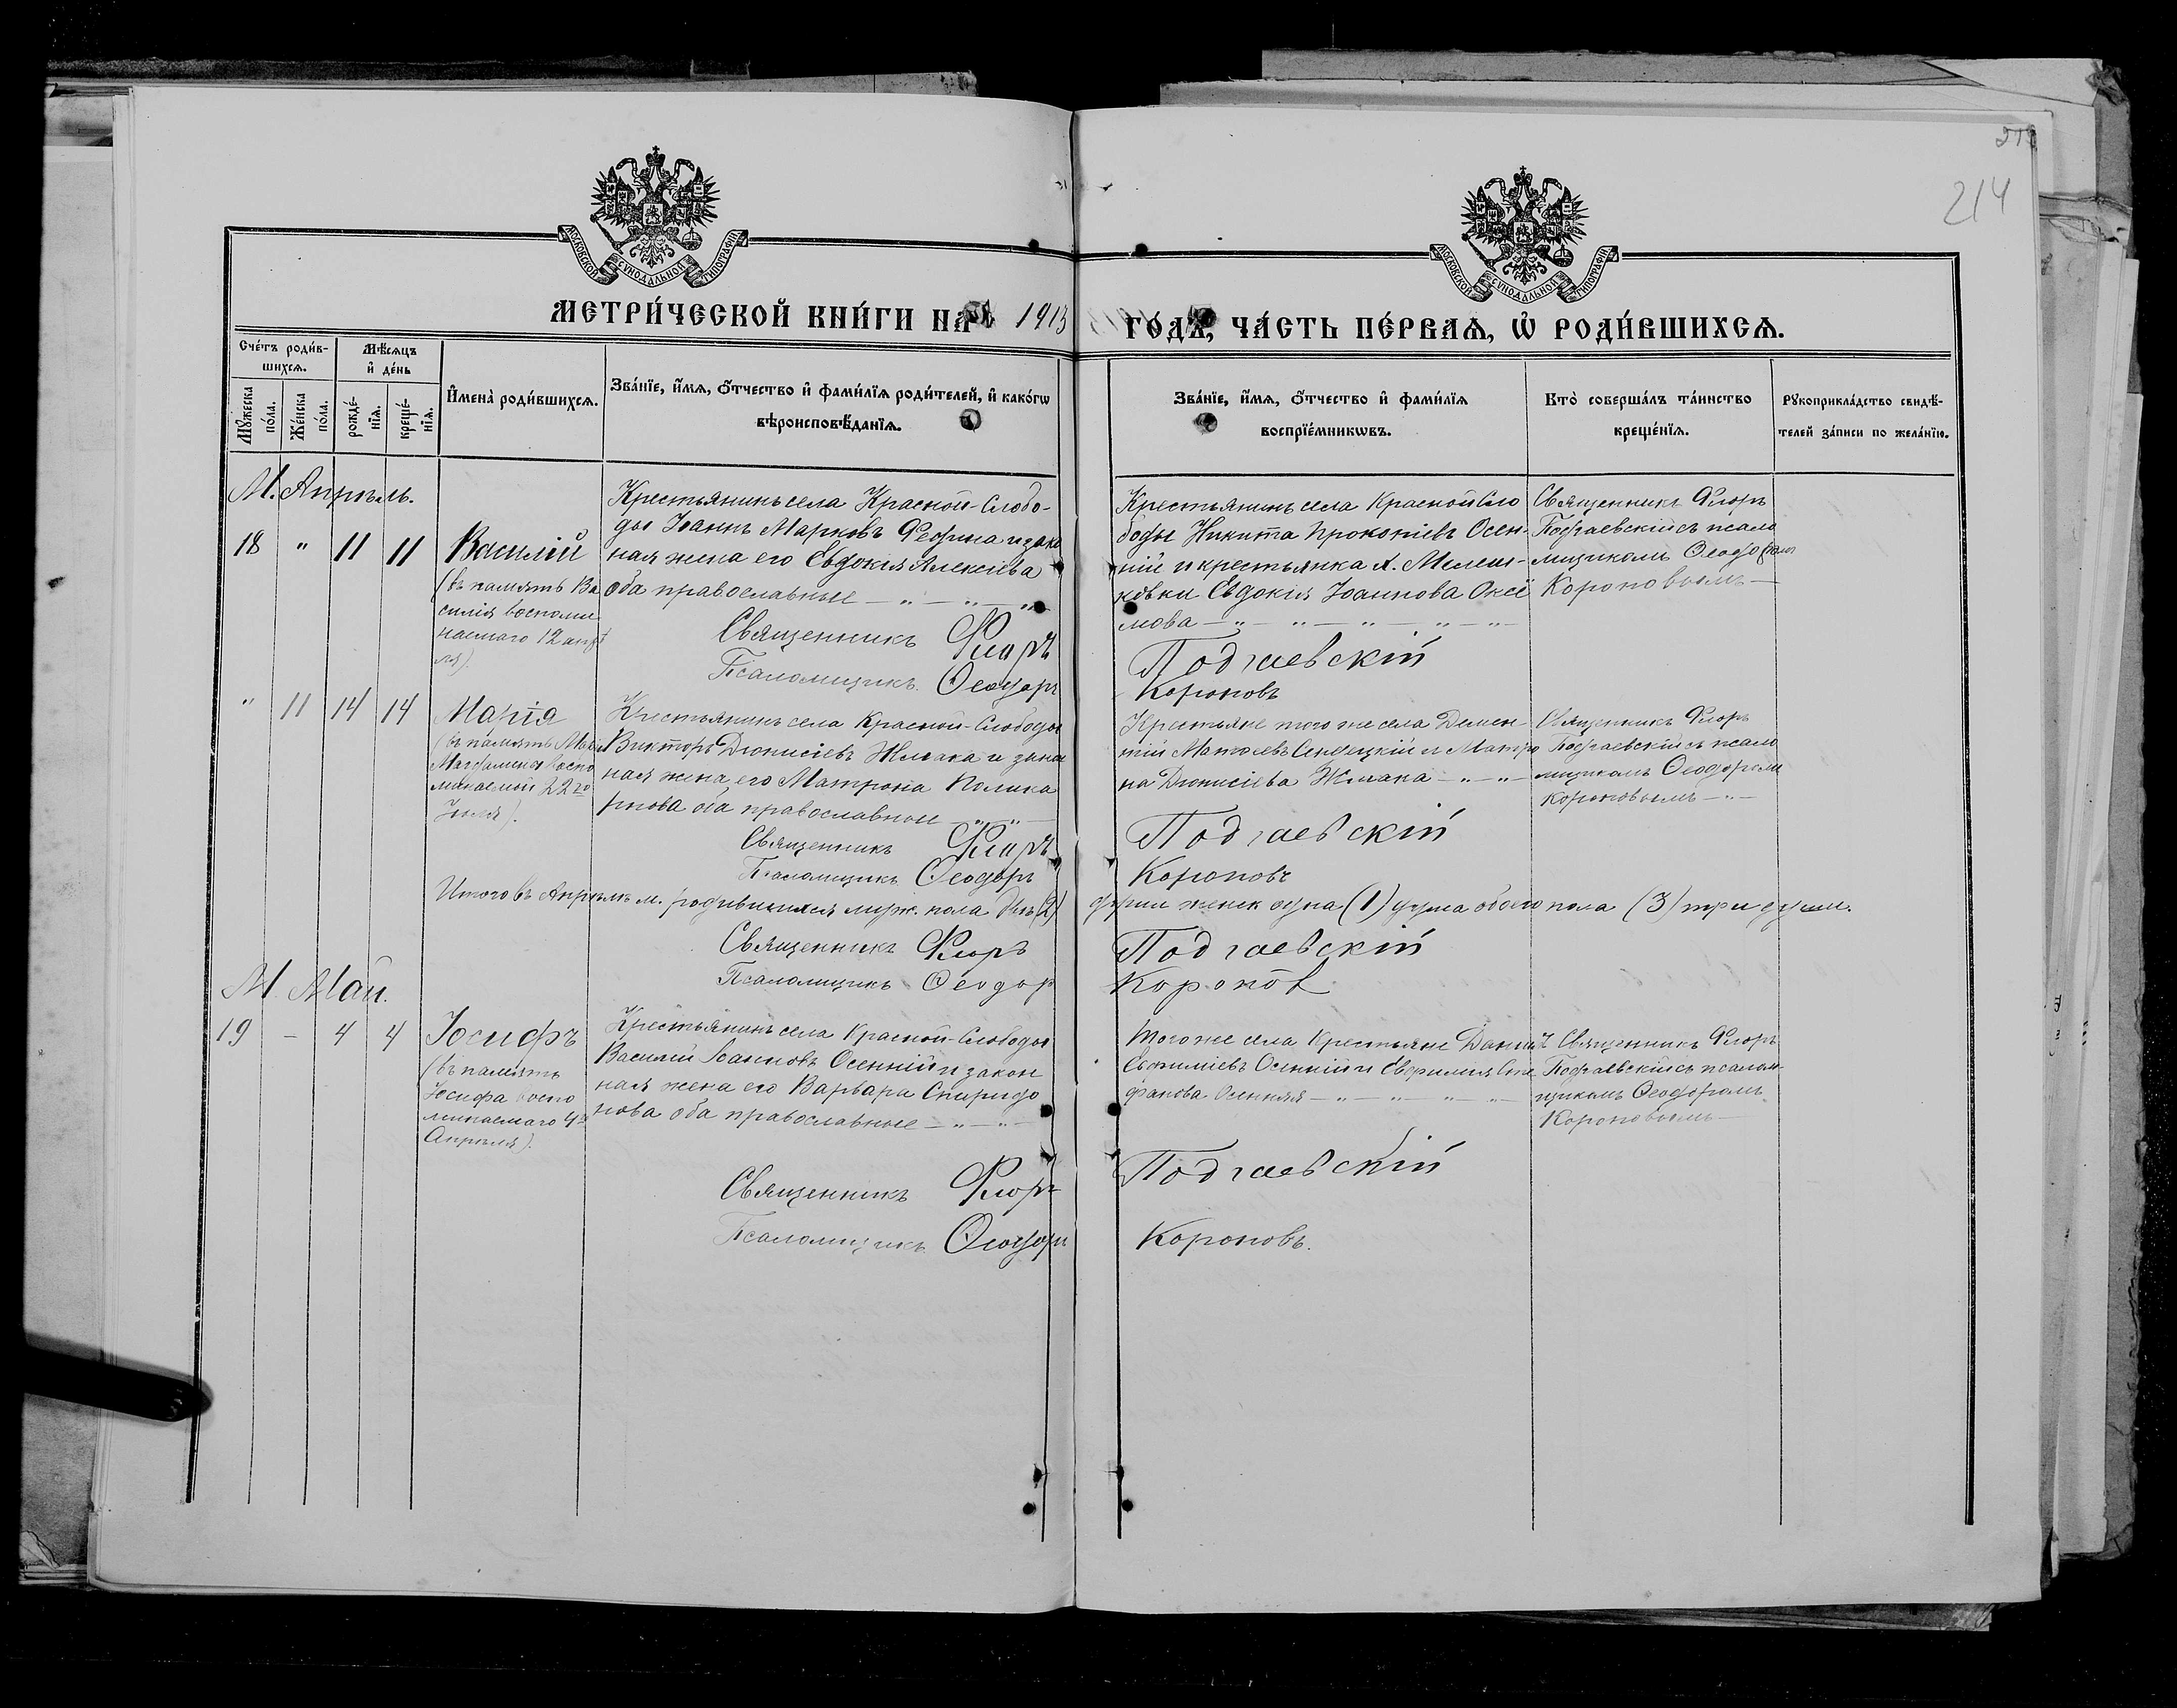 214
МОСКОВСКОЙ СУНОДАЛЬНОЙ ТИПОГРАФИИ
МОСКОВСКОЙ СУНОДАЛЬНОЙ ТИПОГРАФИИ
МЕТРИ́ЧЕСКОЙ КНИ́ГИ НА 1913 ГО́ДЪ, ЧА́СТЬ ПЕ́РВАѦ, Ѡ҆ РОДИ́ВШИХСѦ.
Сче́тъ роди́в-
шихсѧ.
Мꙋ́жеска по́ла.
Же́нска по́ла.
Мѣ́сѧцъ
и҆ де́нь
рожде́-
нїѧ.
креще́-
нїѧ.
И҆мена̀ роди́вшихсѧ.
Зва́нїе, и҆́мѧ, ѻ҆́тчество и҆ фами́лїѧ роди́телей, и҆ како́гѡ
вѣроисповѣ́данїѧ.
Зва́нїе, и҆́мѧ, ѻ҆́тчество и҆ фами́лїѧ
воспрїе́мникѡвъ.
Кто̀ соверша́лъ та́инство
креще́нїѧ.
Рꙋкоприкла́дство свидѣ́-
телей за́писи по жела́нїю.
М. Апрѣль.
18 " 11 11
Василій
(въ память Ва
силія воспоми
наемаго 12 апрѣ
ля).
Крестьянинъ села Красной-Слобо-
ды Іоаннъ Марковъ и зако
ная жена его Евдокія Алексіева
оба православные — " — " — "
Священникъ Флоръ
Псаломщикъ Ѳеодоръ
Крестьянинъ села Красной Сло
боды Никита Прокопіевъ Осен-
ній и крестьянка
ковки Евдокія Іоаннова
мова — " — " — " — " — " —
Подгаевскій
Короповъ
Священникъ Флоръ
Подгаевскій съ псало
мщикомъ Ѳеодором
Короповымъ —
" 11 14 14
Марія
(въ память
Магдалины воспо
минаемой 22го
Іюля).
Крестьянинъ села Красной-Слободы
Викторъ Діонисіевъ Жмака и закон
ная жена его Матрона Полика
рпова оба православные — " — " —
Священникъ Флоръ
Псаломщикъ Ѳеодоръ
Крестьяне того же села Демен-
тій и Матро
на Діонисіева Жмака — " — " —
Подгаевскій
Короповъ
Священникъ Флоръ
Подгаевскій съ псало
мщикомъ Ѳеодоромъ
Короповымъ — " —
Итого въ Апрѣлѣ м. родившихся муж. пола двѣ (2) души женск одна (1) душа обоего пола (3) три души.
Священникъ Флоръ Подгаевскій
Псаломщикъ Ѳеодор Коропов
М. Май.
19 — 4 4
Іосифъ
(въ память
Іосифа воспо
минаемаго 4го
Апрѣля).
Крестьянинъ села Красной-Слободы
Василій Іоанновъ Осенній и закон
ная жена его Варвара Спиридо
нова оба православные — " — " —
Священникъ Флоръ
Псаломщикъ Ѳеодоръ
Того же села Крестьяне Даниил
Евфиміевъ Осенній и Евфимія Сте
фанова Осенняя — " — " — " — " —
Подгаевскій
Короповъ.
Священникъ Флоръ
Подгаевскій съ псалом-
щикомъ Ѳеодоромъ
Короповымъ —